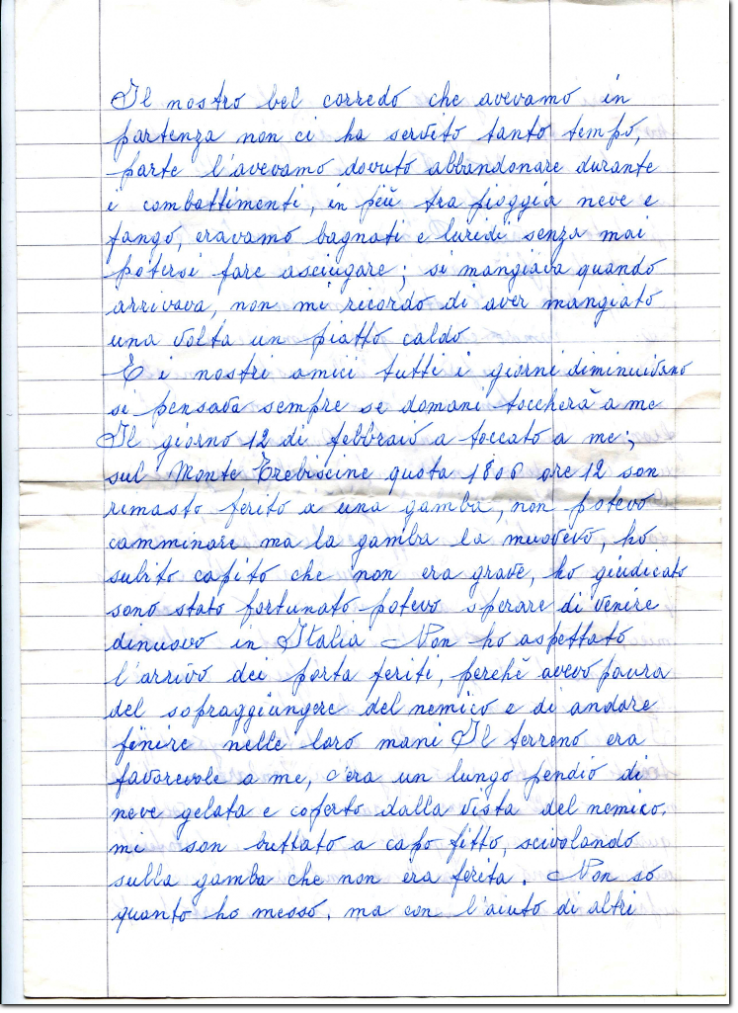 Il nostro bel corredo che avevamo in
partenza non ci ha servito tanto tempo,
parte l'avevamo dovuto abbandonare durante
i combattimenti, in più tra pioggia neve e
fango, eravamo bagnati e luridi senza mai
potersi fare asciugare; si mangiava quando
arrivava, non mi ricordo di aver mangiato
una volta un piatto caldo
E i nostri amici tutti i giorni diminuivano
si pensava sempre se domani toccherà a me
Il giorno 12 di febbraio a toccato a me;
sul Monte Trebiscine quota 1806 ore 12 son
rimasto ferito a una gamba, non potevo
camminare ma la gamba la muovevo, ho
subito capito che non era grave, ho giudicato
sono stato fortunato potevo sperare di venire
dinuovo in Italia Non ho aspettato
l'arrivo dei porta feriti, perchè avevo paura
del sopraggiungere del nemico e di andare
finire nelle loro mani Il terreno era
favorevole a me, c'era un lungo pendio di
neve gelata e coperto dalla vista del nemico.
mi son buttato a capo fitto, scivolando
sulla gamba che non era ferita. Non so
quanto ho messo. ma con l'aiuto di altri